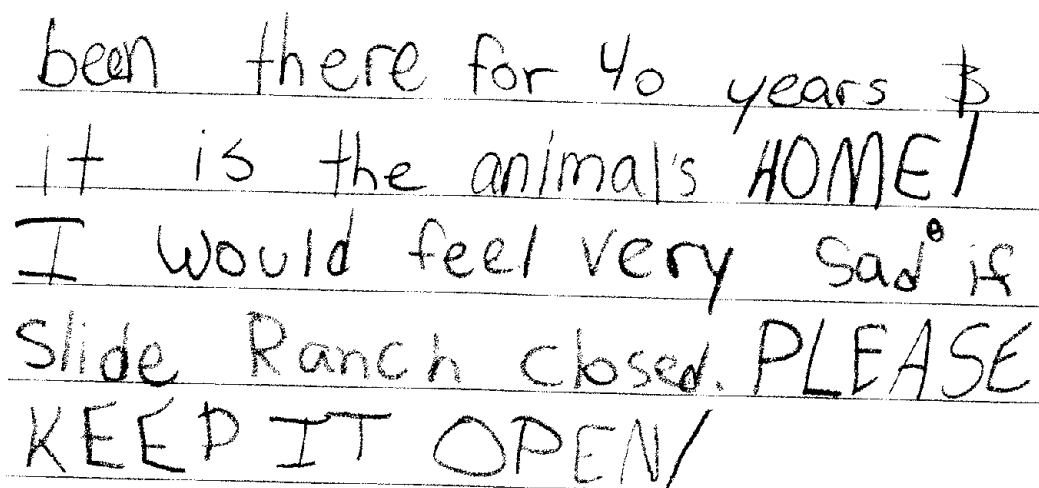 been there for 40 years &
it is the animal's HOME!
I would feel very sad if
Slide Ranch closed. PLEASE
KEEP IT OPEN!